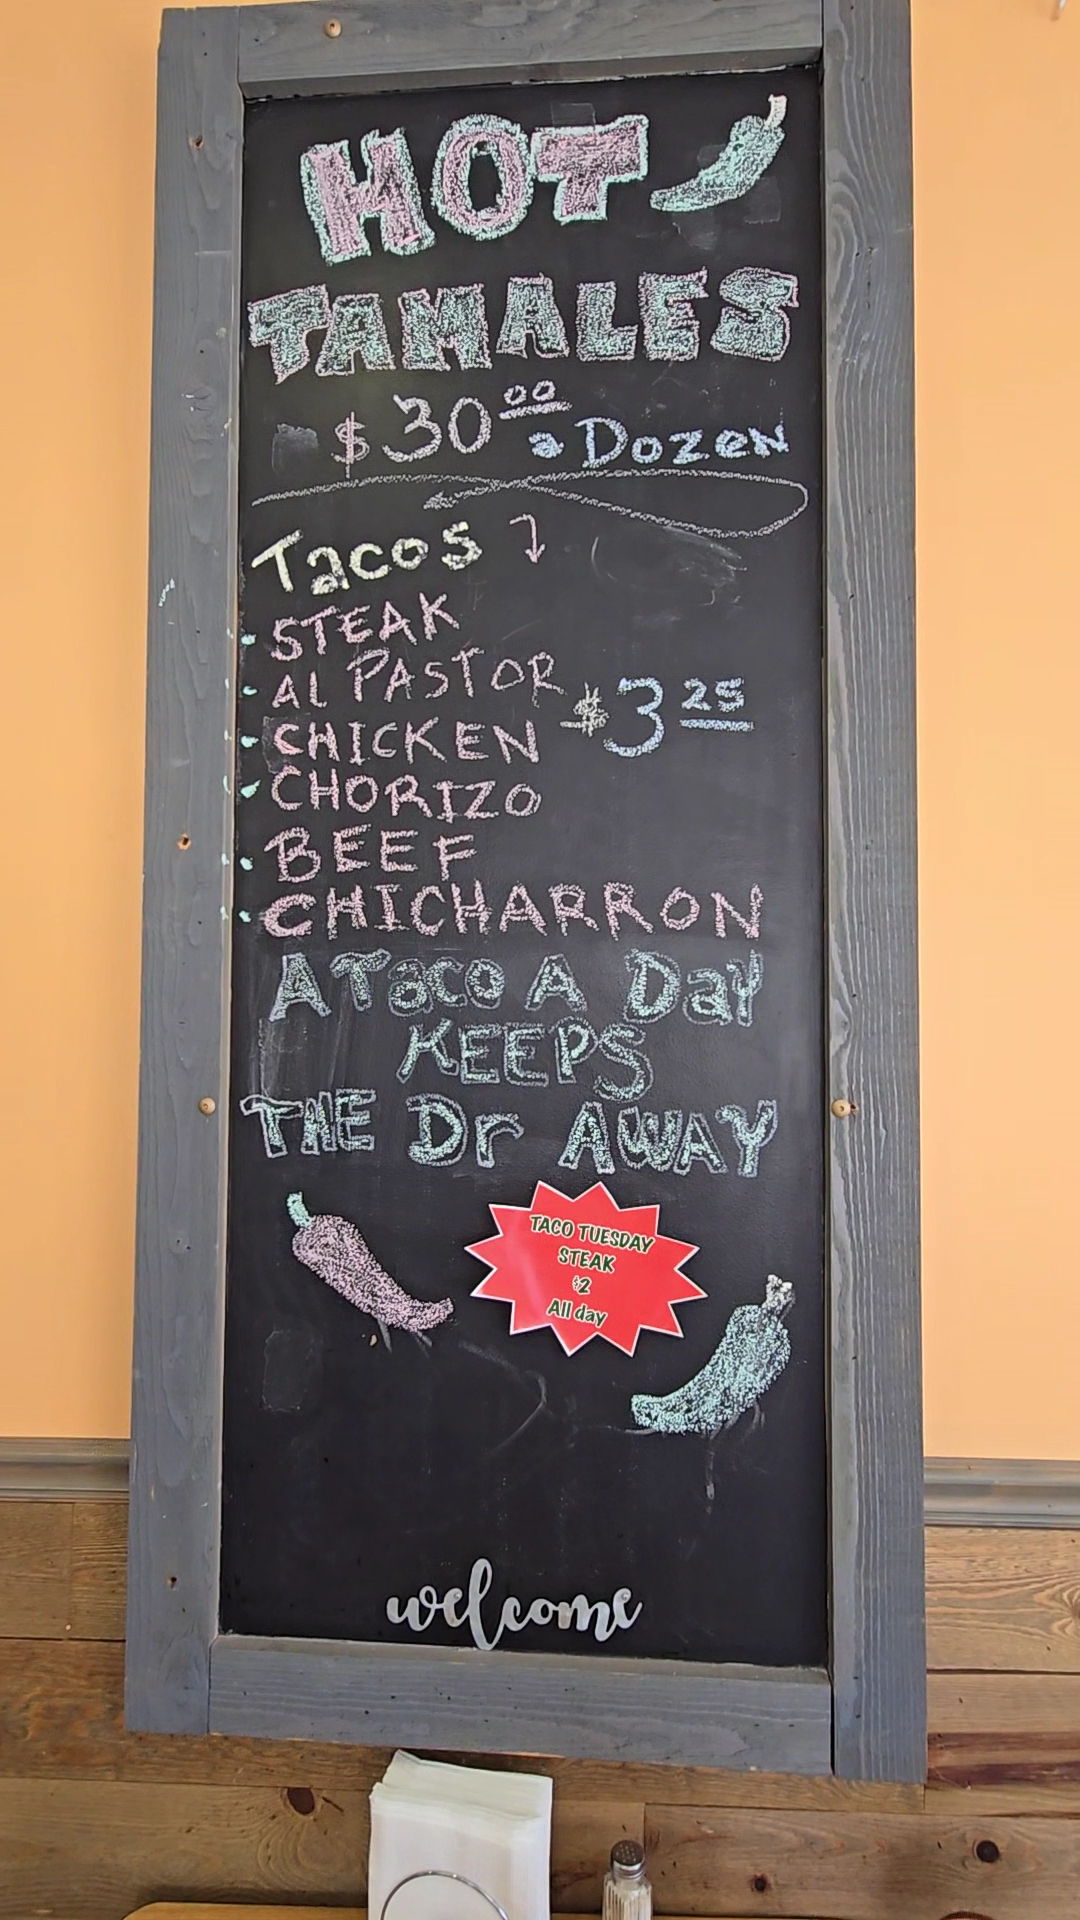 HOT
TAMALES
$30.00 a Dozen
Tacos
• STEAK
• AL PASTOR
• CHICKEN
$3.25
• CHORIZO
• BEEF
• CHICHARRON
A Taco A Day
KEEPS
THE Dr AWAY
TACO TUESDAY
STEAK
$2
All day
welcome